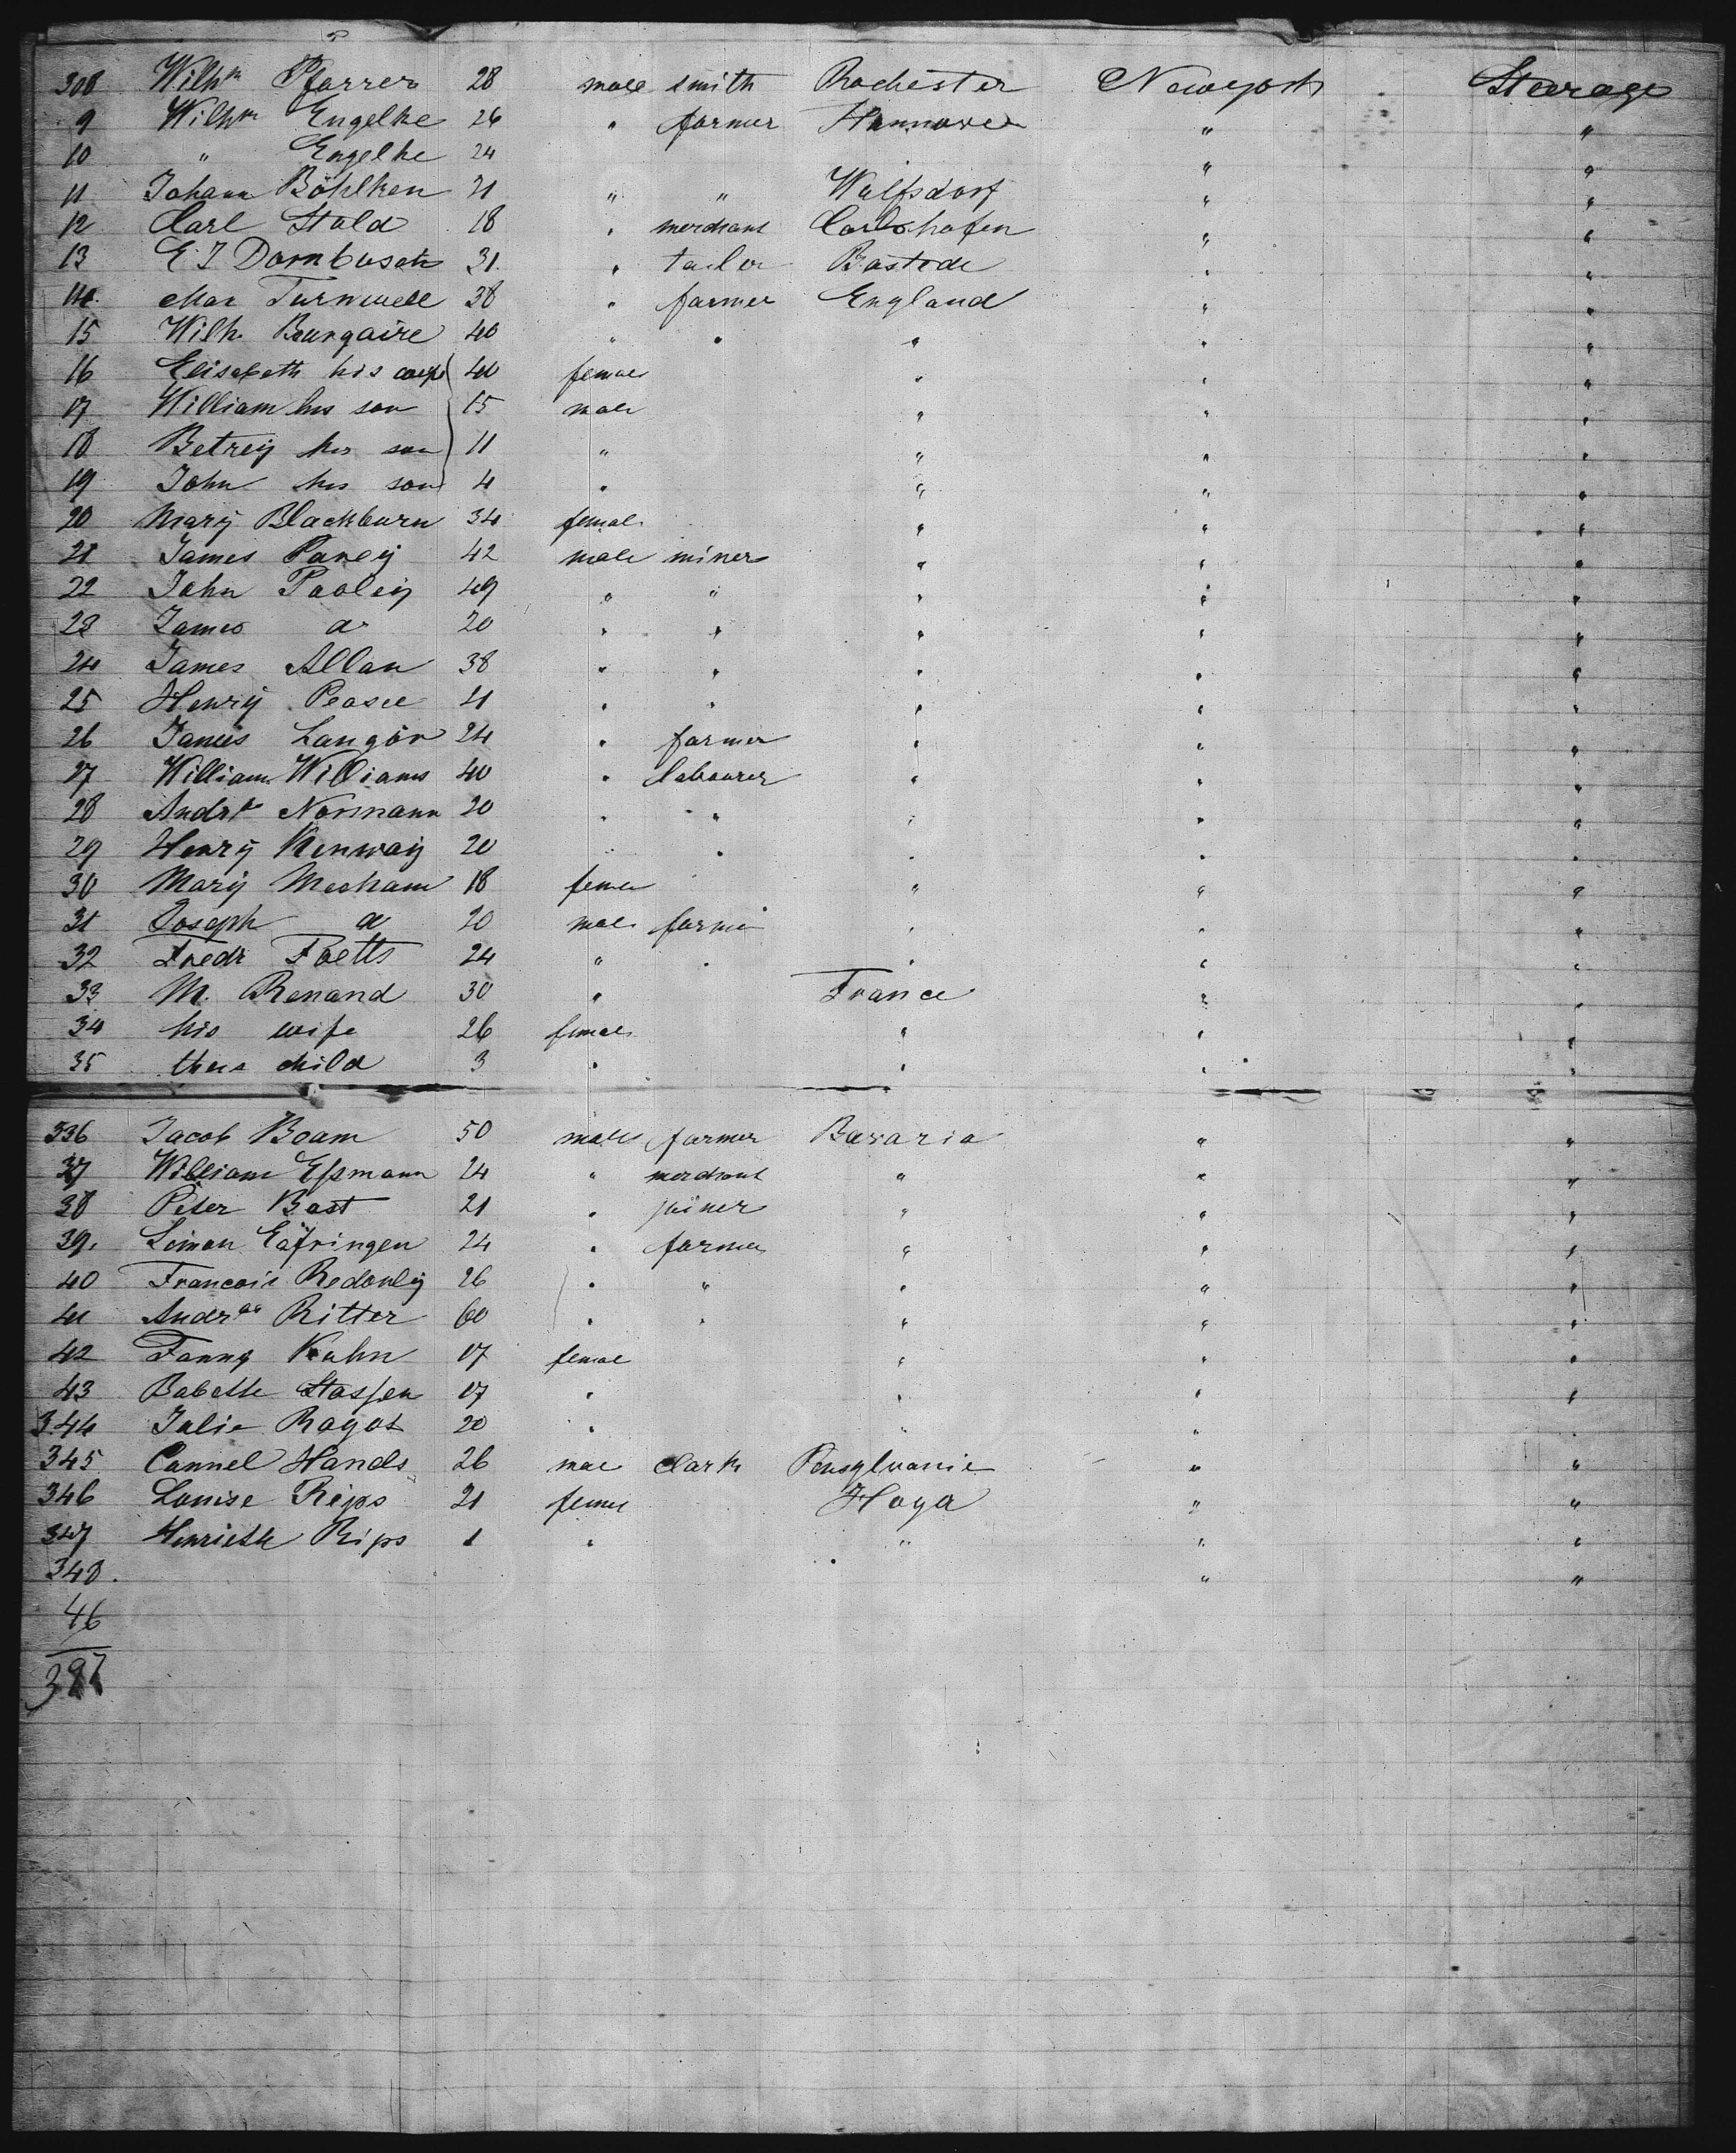 308 Wilhm Pfarrer 28 male smith Rochester Newyork Steerage
9 Wilhm Engelke 26 " farmer Hannover " "
10 " Engelke 24 " "
11 Johann Böhlken 21 " " Wulfsdorf " "
12 Carl Stold 18 " merchant Carlshafen " "
13 E I Dornbusch 31. " tailer Rastede " "
14. 38 " farmer England " "
15 Wilh. 40 " " " " "
16 Elisabeth his wife 40 female " " "
17 William his son 15 male " " "
18 Betrey his son 11 " " " "
19 John his son 4 " " " "
20 Mary Blackburn 34 female " " "
21 James Parey 42 male miner " " "
22 John Pooley 49 " " " " "
23 James do 20 " " " " "
24 James Allan 38 " " " " "
25 Henry Pease 21 " " " " "
26 James Langör 24 " farmer " " "
27 William Williams 40 " labourer " " "
28 Andrs Normann 20 " " " " "
29 Henry Kenway 20 " " " " "
30 Mary Mesham 18 female " " "
31 Joseph do 20 male farmer " " "
32 Fredr 24 " " " " "
33 M. Renand 30 " France " "
34 his wife 26 female " " "
35 child 3 " " " "
336 Jacob Beam 50 male farmer Bavaria " "
37 William Eßmann 24 " merchant " " "
38 Peter Bast 21 " joiner " " "
39. Simon 24 " farmer " " "
40 Francois Redonly 26 " " " " "
41 Andras Ritter 60 " " " " "
42 Fanny Kuhn 17 female " " "
43 Babette Stassen 17 " " " "
344 Julie Ragot 20 " " " "
345 Cannel Hands 26 male Clark Pensylvanie " "
346 Louise Rips 21 female Hoya " "
347 Henriette Rips 1 " " " "
348. " "
46
387